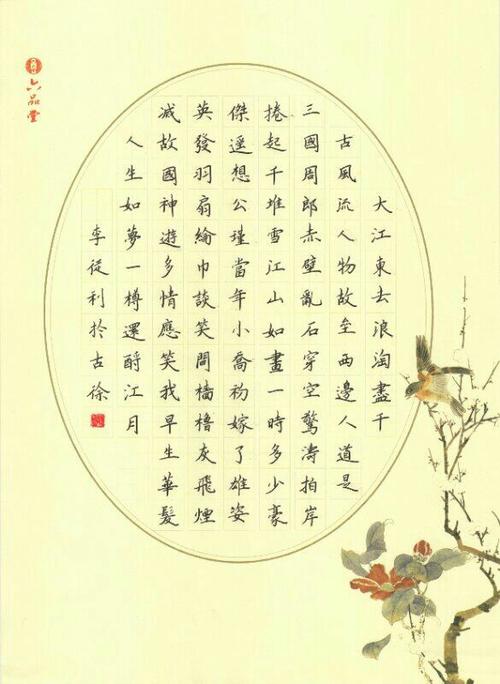 六品堂
大江東去浪淘盡千
古風流人物故垒西邊人道是
三國周郎赤壁亂石穿空驚濤拍岸
捲起千堆雪江山如畫一時多少豪
傑遥想公瑾當年小喬初嫁了雄姿
英發羽扇綸巾談笑間檣櫓灰飛煙
滅故國神遊多情應笑我早生華髮
人生如夢一樽還酹江月
李從利於古徐